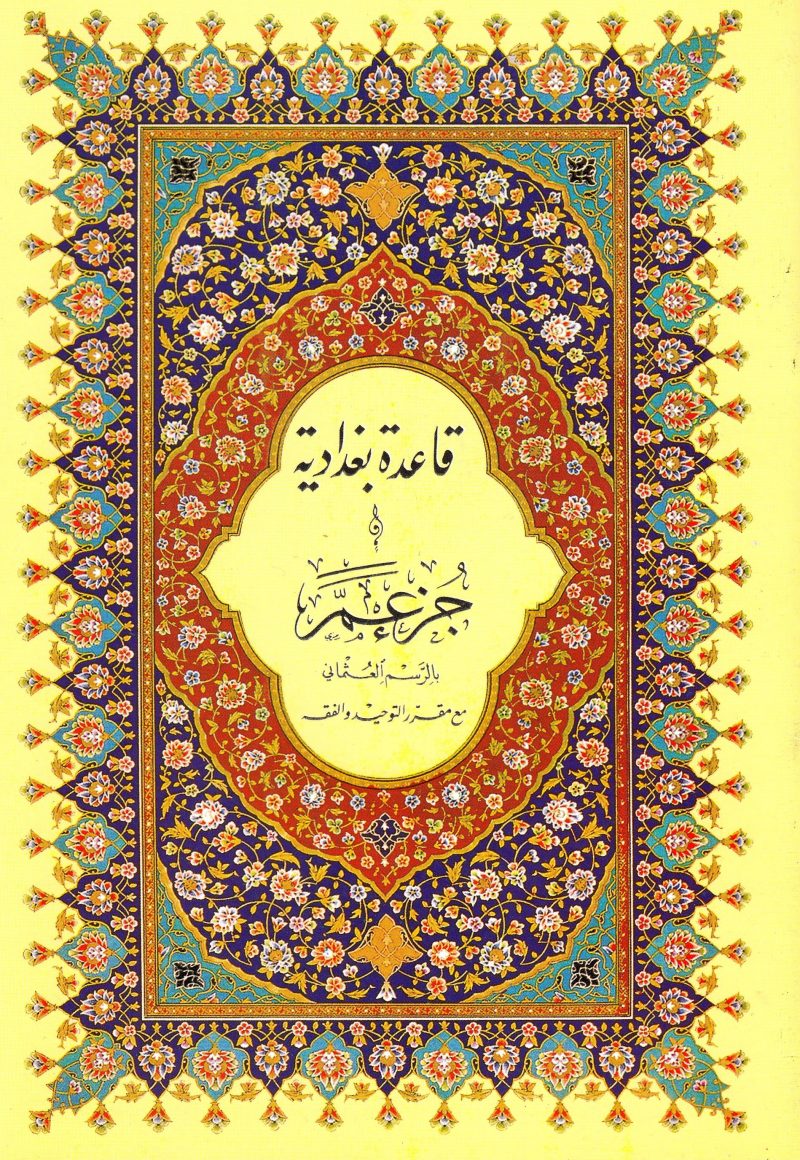 قاعدة بغدادية
و
جُزْء عَمَّ
بِالرَّسْمِ ٱلْعُثْمَانِي
مع مقرّر التوحيد والفقه